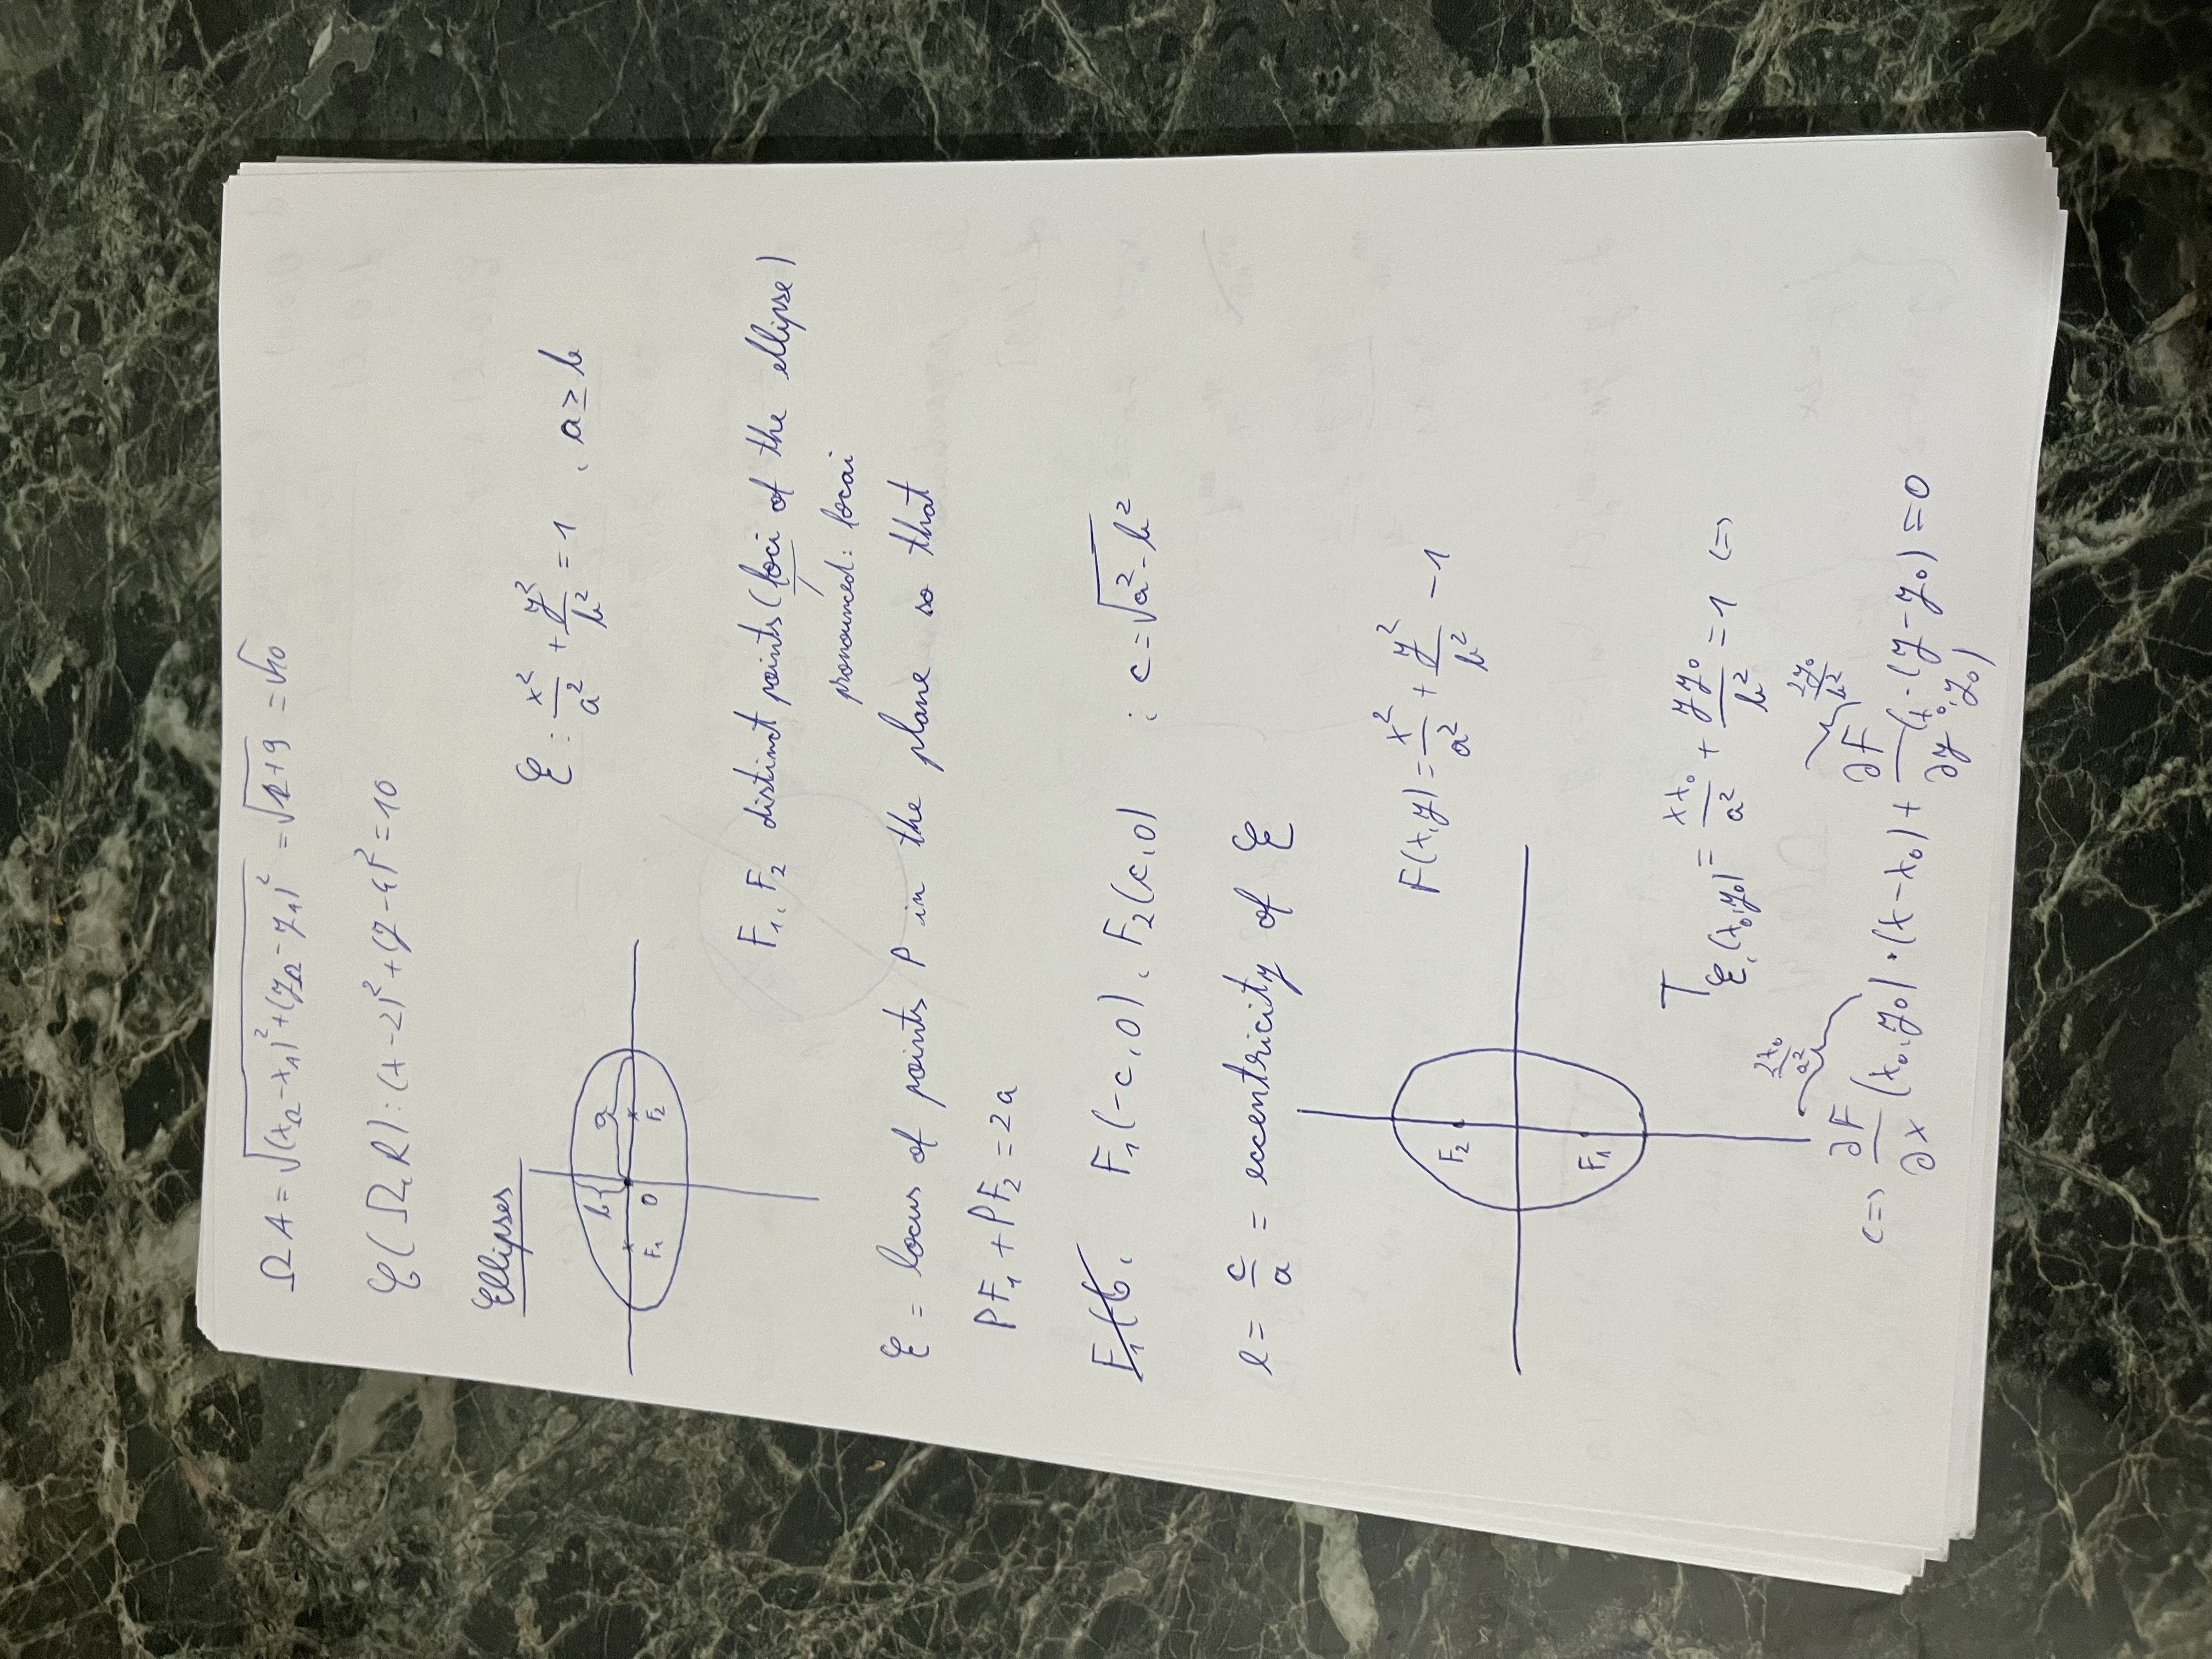 ΩA = √((x_Ω - x_A)² + (y_Ω - y_A)²) = √(1+9) = √10
𝒞(Ω, R): (x-2)² + (y-4)² = 10
Ellipses
ℰ: x²/a² + y²/b² = 1 , a ≥ b
b a
F₁ O F₂
F₁, F₂ distinct points (foci of the ellipse)
pronounced: focai
ℰ = locus of points P in the plane so that
PF₁ + PF₂ = 2a
F₁(b, F₁(-c, 0), F₂(c, 0) ; c = √(a² - b²)
e = c/a = eccentricity of ℰ
F(x,y) = x²/a² + y²/b² - 1
F₂
F₁
T_ℰ,(x₀,y₀) = xx₀/a² + yy₀/b² = 1 <=>
2x₀/a² 2y₀/b²
<=> ∂F/∂x (x₀,y₀) · (x-x₀) + ∂F/∂y (x₀,y₀) · (y-y₀) = 0